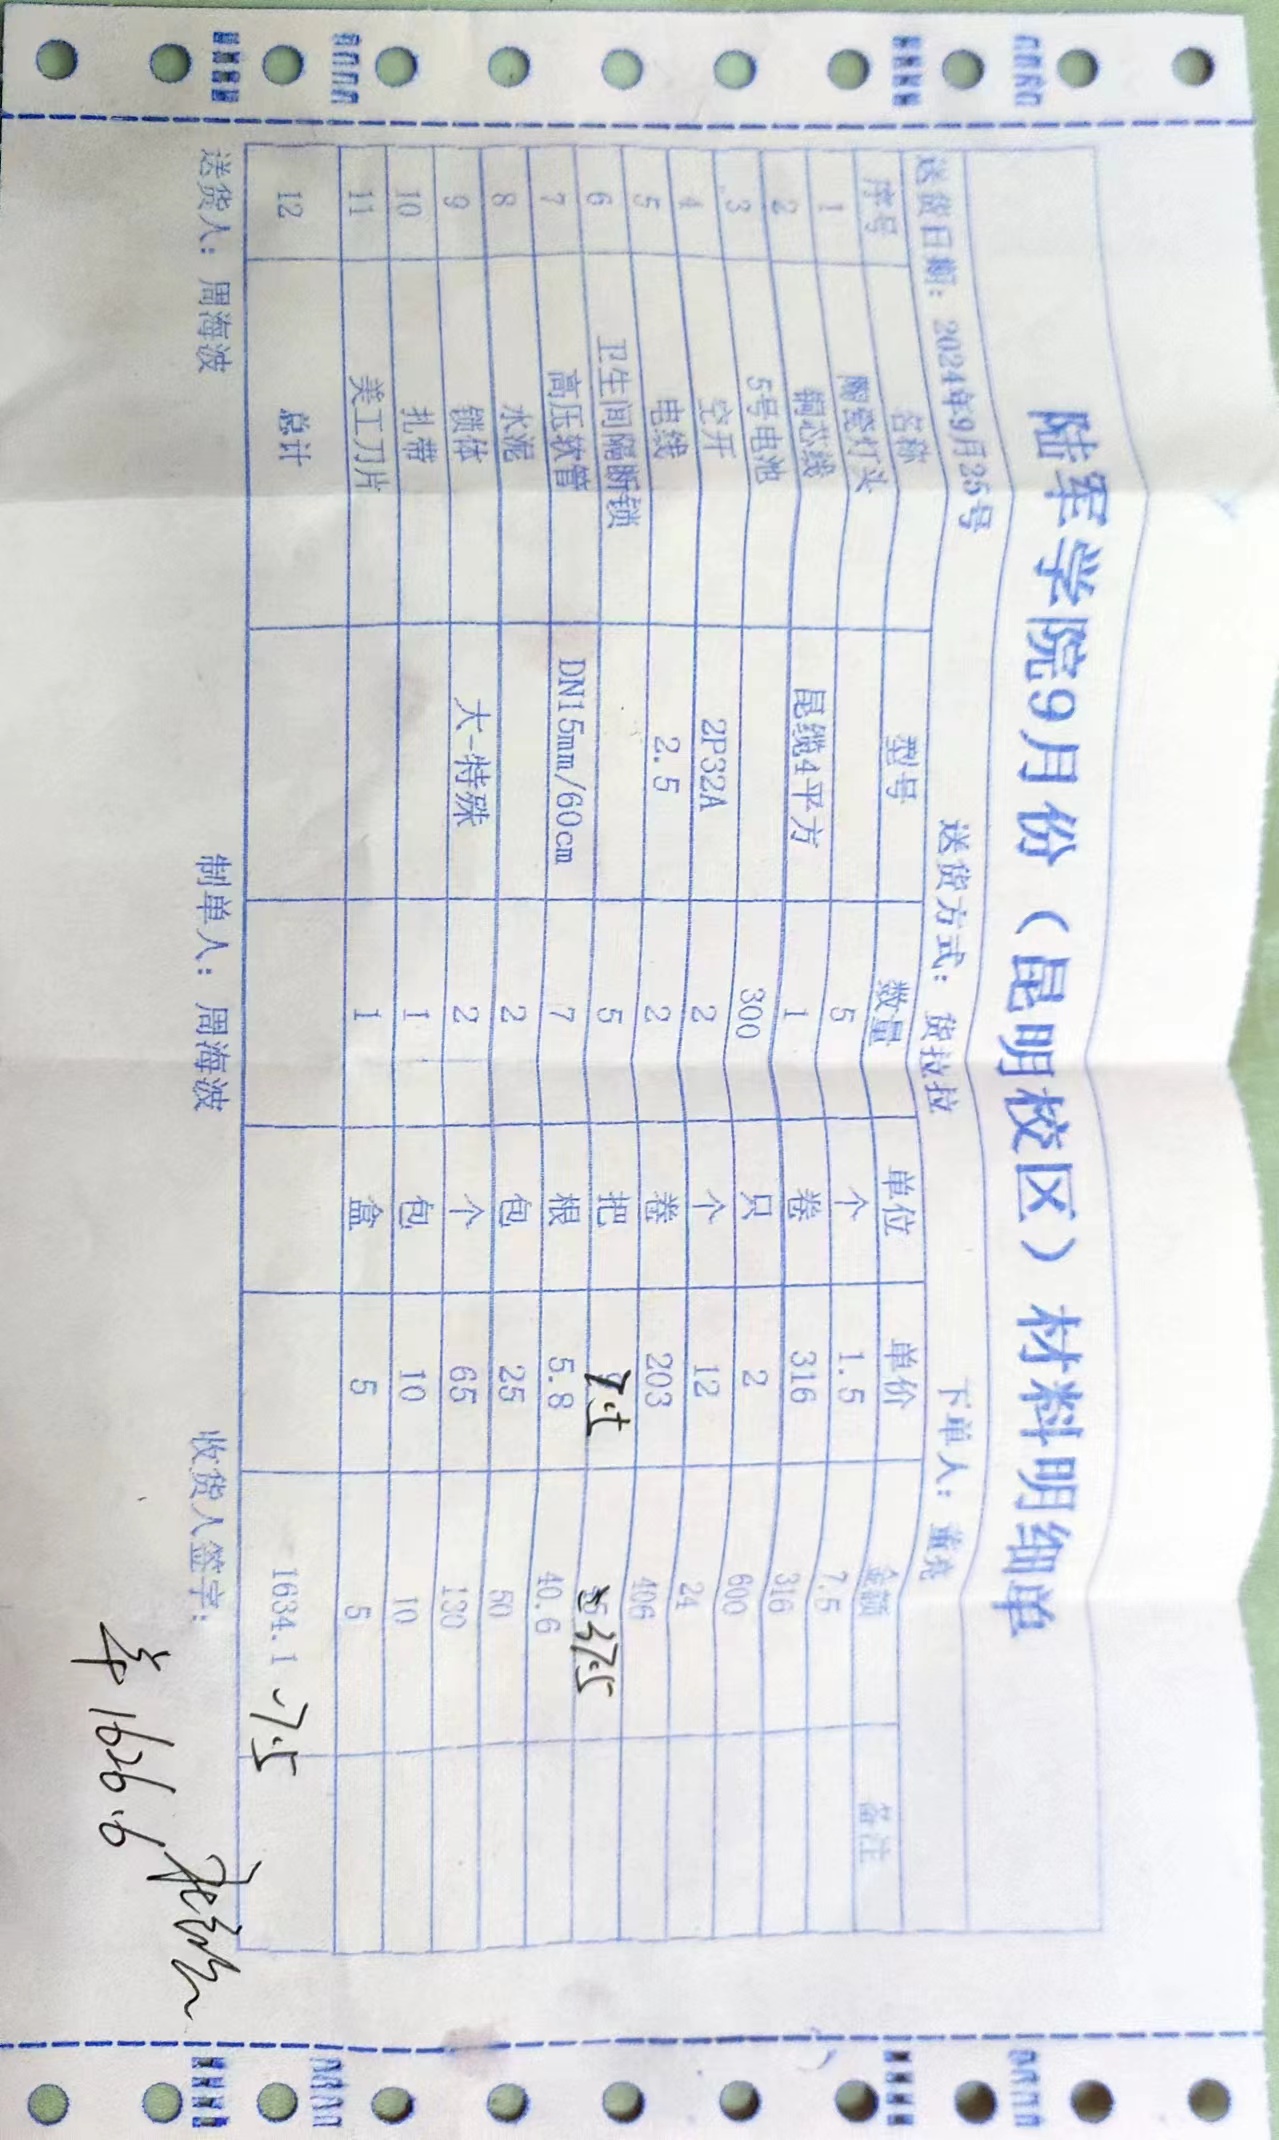 陆军学院9月份（昆明校区）材料明细单
送货日期：2024年9月25号 送货方式：货拉拉 下单人：董亮
序号 名称 型号 数量 单位 单价 金额 备注
1 陶瓷灯头 5 个 1.5 7.5
2 铜芯线 昆缆4平方 1 卷 316 316
3 5号电池 300 只 2 600
4 空开 2P32A 2 个 12 24
5 电线 2.5 2 卷 203 406
6 卫生间隔断锁 5 把 7.5 37.5
7 高压软管 DN15mm/60cm 7 根 5.8 40.6
8 水泥 2 包 25 50
9 锁体 大-特殊 2 个 65 130
10 扎带 1 包 10 10
11 美工刀片 1 盒 5 5
12 总计 1634.1 -7.5
送货人：周海波 制单人：周海波 收货人签字：
1626.6